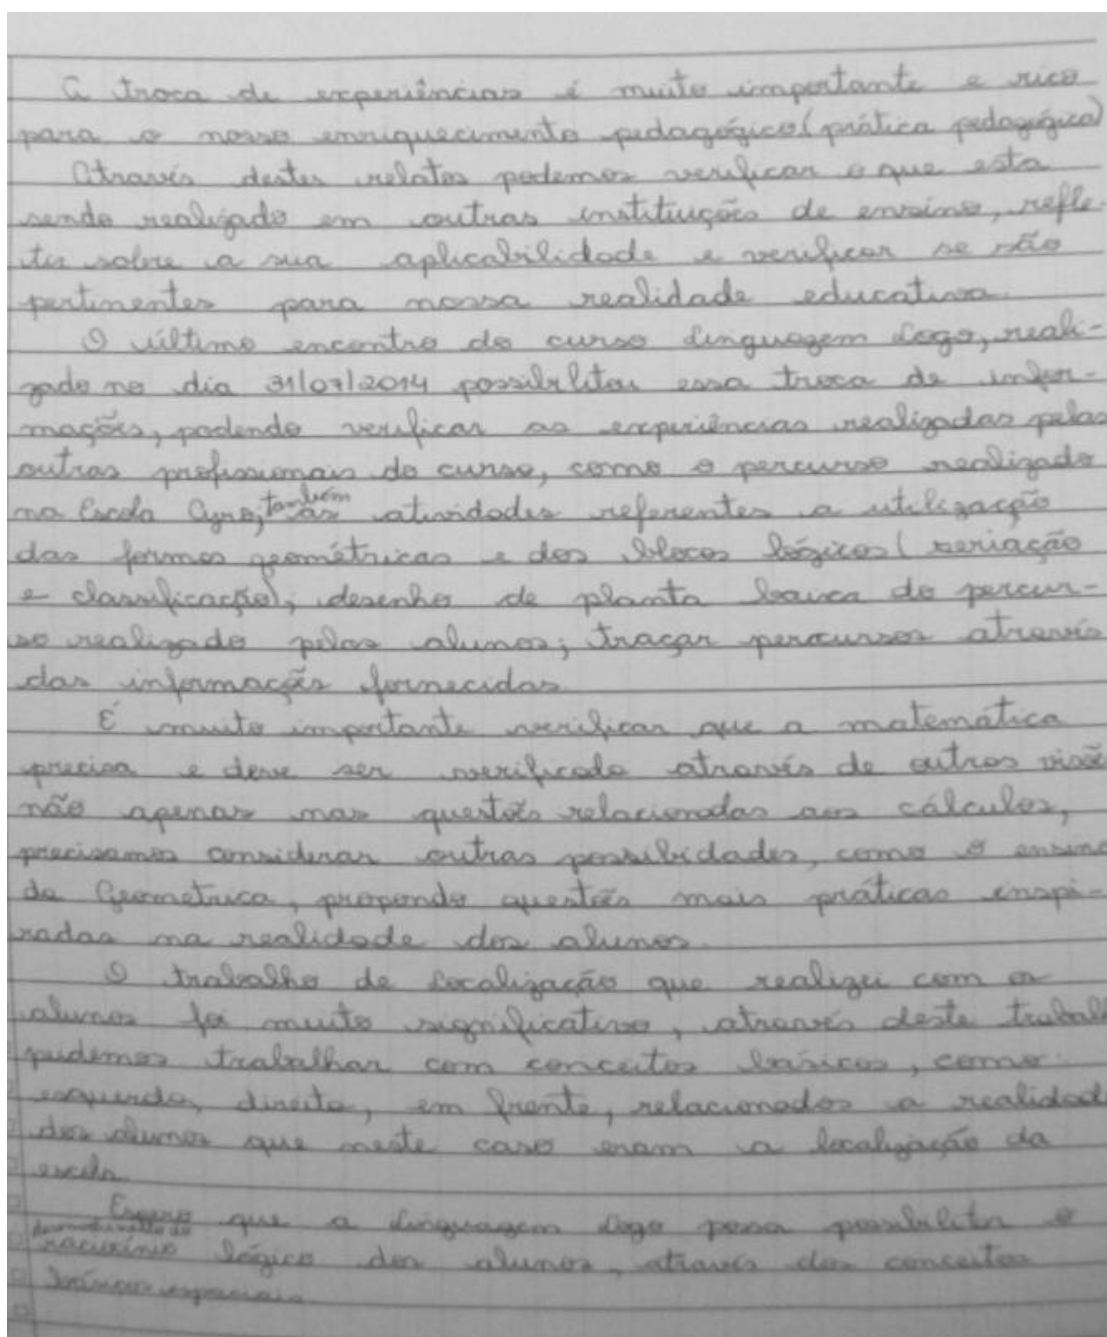 A troca de experiências é muito importante e rico
para o nosso enriquecimento pedagógico (prática pedagógica)
Através destes relatos podemos verificar o que esta
sendo realizado em outras instituições de ensino, refle-
tir sobre a sua aplicabilidade e verificar se são
pertinentes para nossa realidade educativa.
O último encontro do curso linguagem Logo, reali-
zado no dia 31/07/2014 possibilitou essa troca de infor-
mações, podendo verificar as experiências realizadas pelas
outras profissionais do curso, como o percurso realizado
na Escola Cyro, também as atividades referentes a utilização
das formas geométricas e dos blocos lógicos (seriação
e classificação); desenho de planta baixa do percur-
so realizado pelos alunos; traçar percursos através
das informações fornecidas.
É muito importante verificar que a matemática
precisa e deve ser verificada através de outras visõe
não apenas nas questões relacionadas aos cálculos,
precisamos considerar outras possibidades, como o ensino
da Geometrica, propondo questões mais práticas inspi-
radas na realidade dos alunos.
O trabalho de localização que realizei com os
alunos foi muito significativo, através deste trabalh
pudemos trabalhar com conceitos básicos, como:
esquerda, direita, em frente, relacionados a realidad
dos alunos que neste caso eram a localização da
escola.
Espero que a linguagem Logo possa possibilitar o
desenvolvimento do raciocínio lógico dos alunos, através dos conceitos
básicos espaciais.